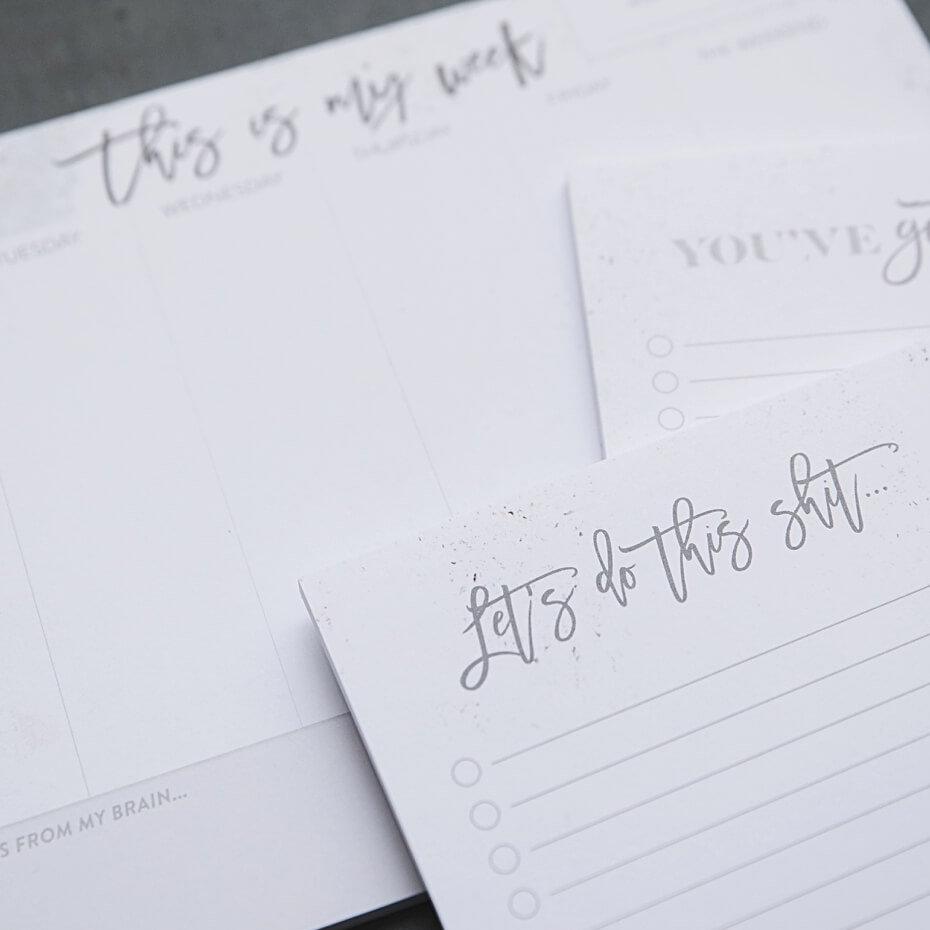 this is my week
TUESDAY
WEDNESDAY
THURSDAY
FRIDAY
THE WEEKEND
YOU'VE
Let's do this shit...
FROM MY BRAIN...